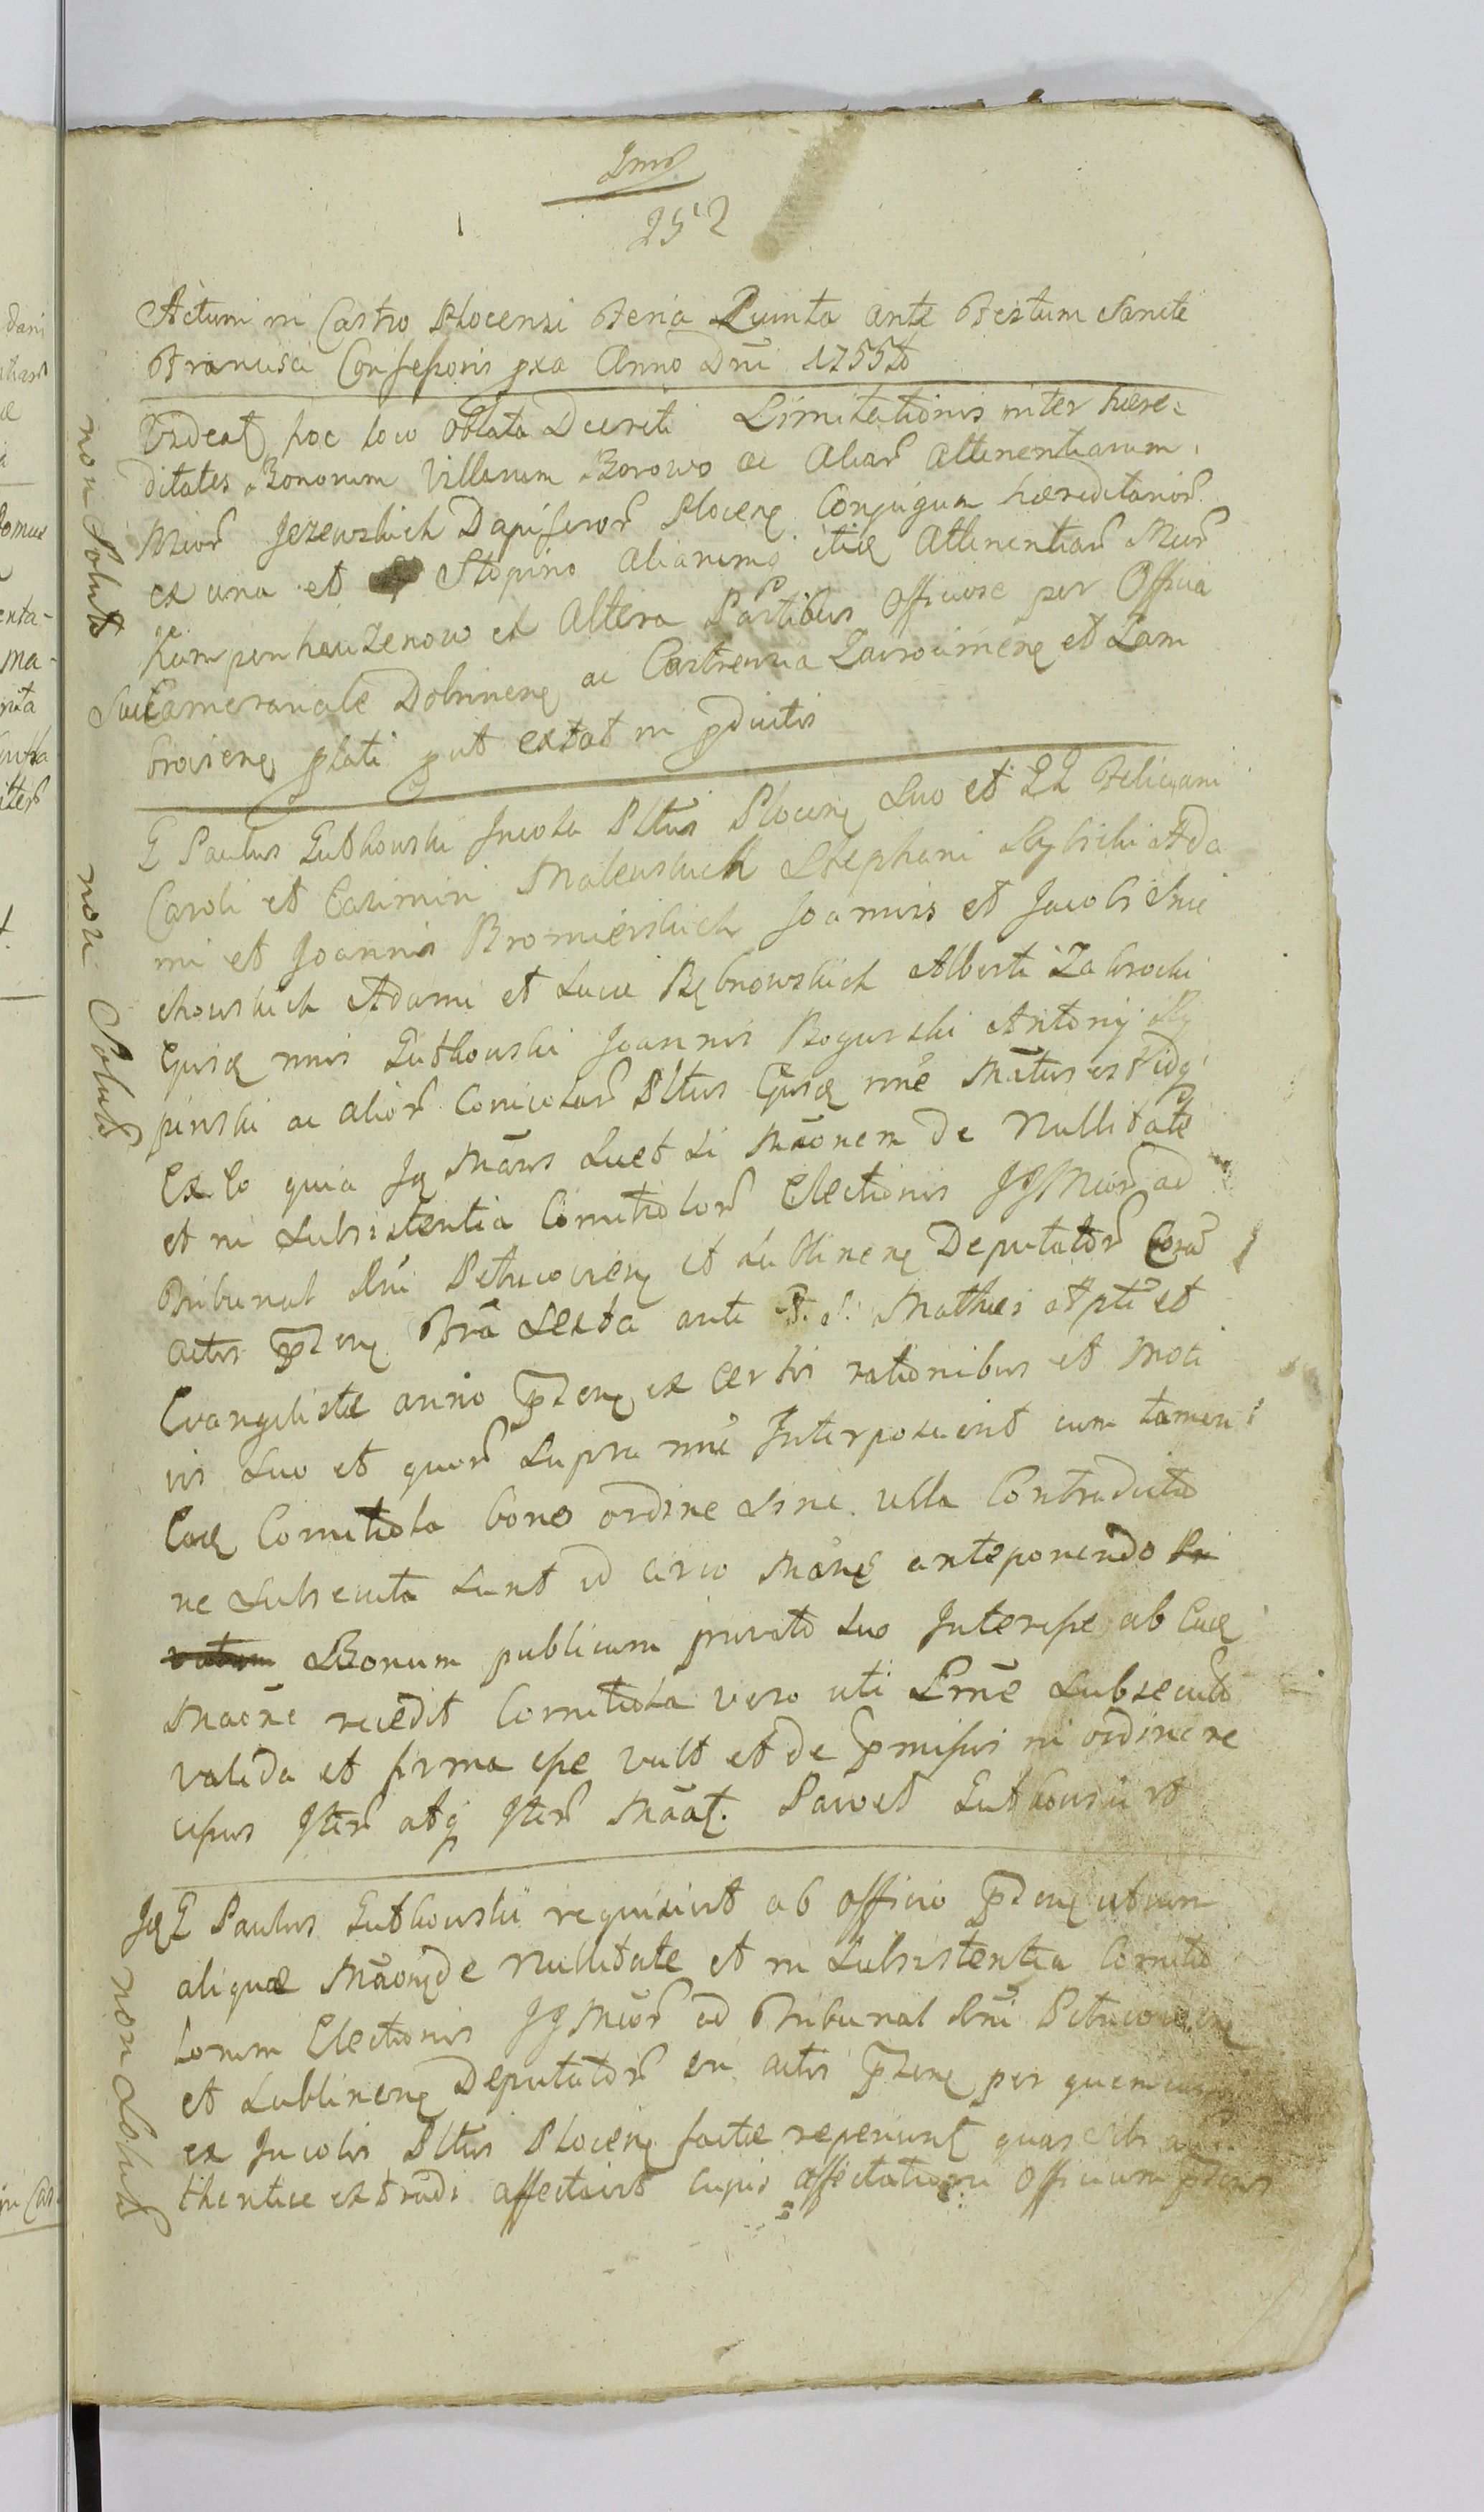 252
Actum in Castro Plocensi Feria Quinta ante Festum Sancti
Francisci Confessoris pxa Anno Dni 1755to
Videat hoc loco oblata Decreti Limitationis inter hære=
ditates Bonorum Villarum Borowo ac Aliar Attinentiarum
Mcor Jezewskich Dapiferor Plocens Conjugum hæreditarior
ex una et Stopino aliarumq itid Attinentiar Mcor
Kampenhauzenow ex Altera Partibus officiose per Officia
Succamerariale Dobrinens ac Castrensia Zawroimens et Zam
brosiens plati put extat in pductis
non Solut
G Paulus Gutkowski Incola Pltus Plocens suo et GG Feliciani
Caroli et Casimiri Malewskich Stephani Rybicki Ada
mi et Joannis Bromierskich Joannis et Jacobi Snie
chowskich Adami et Lucæ Rębnowskich Alberti Zabrocki
Ejusd nnis Gutkowski Joannis Bogurski Antonij Ry
pinski ac alior Conicolar Pltus Ejusd nne Manus est idq
Ex Eo quia Jd Manns suet si Maonem de Nullitate
et in subsistentia Comitiolor Electionis JJ Mcor ad
Tribunal Rni Petricoviens et Lublinens Deputator Cora
actis pzens Fra Sexta ante F. S. Mathæi Apti et
Evangelistæ anno pzens ex certis rationibus et moti
vis suo et quor supra nne Interposuerit cum tamen
Ead Comitiola bono ordine sine ulla Contradictio
ne subsecuta sunt id circo Mans anteponendo Pri
vatum Bonum publicum privato suo Interesse ab Ead
Maone recedit Comitiola vero uti Pmne subsecuta
valida et firma esse vult et de pmissis in ordine re
cessus Iter atq Iter Maat. Paweł Gutkowski
non Solut
Jd G Paulus Gutkowski requisivit ab officio pzens utrum
aliquæ Maones de Nullitate et in subsistentia Comitio
lorum Electionis JJ Mcor ad Tribunal Rni Petricoviens
et Lublinens Deputator in actis pzens per quemcunq
ex Incolis Pltus Plocens factæ reperiunt quas sibi au
thentice extradi affectavit Cujus affectationi Officium pzens
non Solut